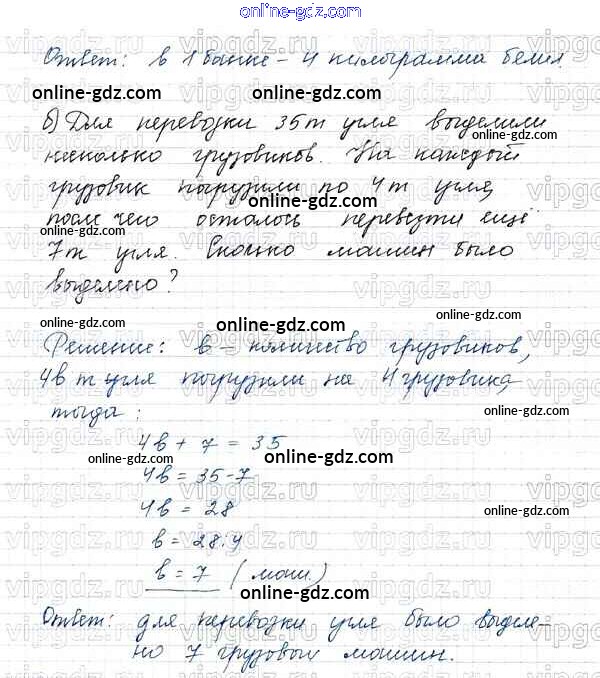 online-gdz.com
Ответ: в 1 банке - 4 килограмма белил.
online-gdz.com online-gdz.com
б) Для перевозки 35т угля выделили
несколько грузовиков. На каждый
грузовик погрузили по 4т угля,
после чего осталось перевезти ещё
7т угля. Сколько машин было
выделено?
online-gdz.com online-gdz.com online-gdz.com
Решение: в - количество грузовиков,
4в т угля погрузили на 4 грузовика,
тогда:
4в + 7 = 35
4в = 35-7
4в = 28
в = 28:4
в = 7 (маш.)
online-gdz.com
Ответ: для перевозки угля было выделе-
но 7 грузовых машин.